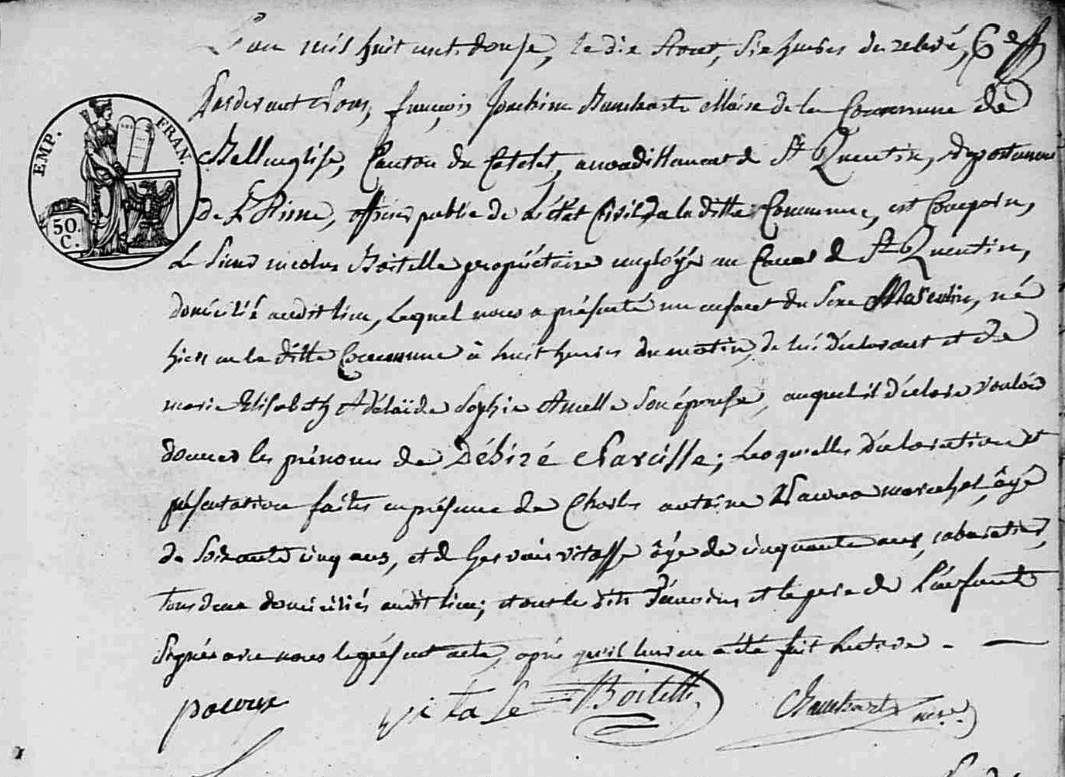 L'an mil huit cent douze, le dix Aout, six heures de relevé,
Pardevant Nous, françois Joachim Maire de la Commune de
Bellenglise, Canton du Catelet, arrondissement de St Quentin, departement
De L'Aisne, officier public de L'état Civil de la ditte Commune, est Comparu,
Le Sieur nicolas Boitelle propriétaire employé au Canal de St Quentin,
domicilié audit lieu, Lequel nous a présenté un enfant du Sexe Masculin, né
hier en la ditte Commune à huit heures du matin, de lui déclarant et de
marie Elisabeth Adélaïde Sophie Son épouse, auquel il déclare vouloir
donner les prénoms de Désiré Narcisse; Lesquelles déclaration et
présentation faites en présence de Charles antoine marechal, âgé
de Soixante cinq ans, et de Gervais vitasse âgé de cinquante ans, cabaretier,
tous deux domiciliés audit lieu; et ont les dits témoins et le père de L'enfant
Signés avec nous le présent acte, après qu'il leur en a été fait Lecture.
vitasse Boitelle
EMP. FRAN.
50. C.